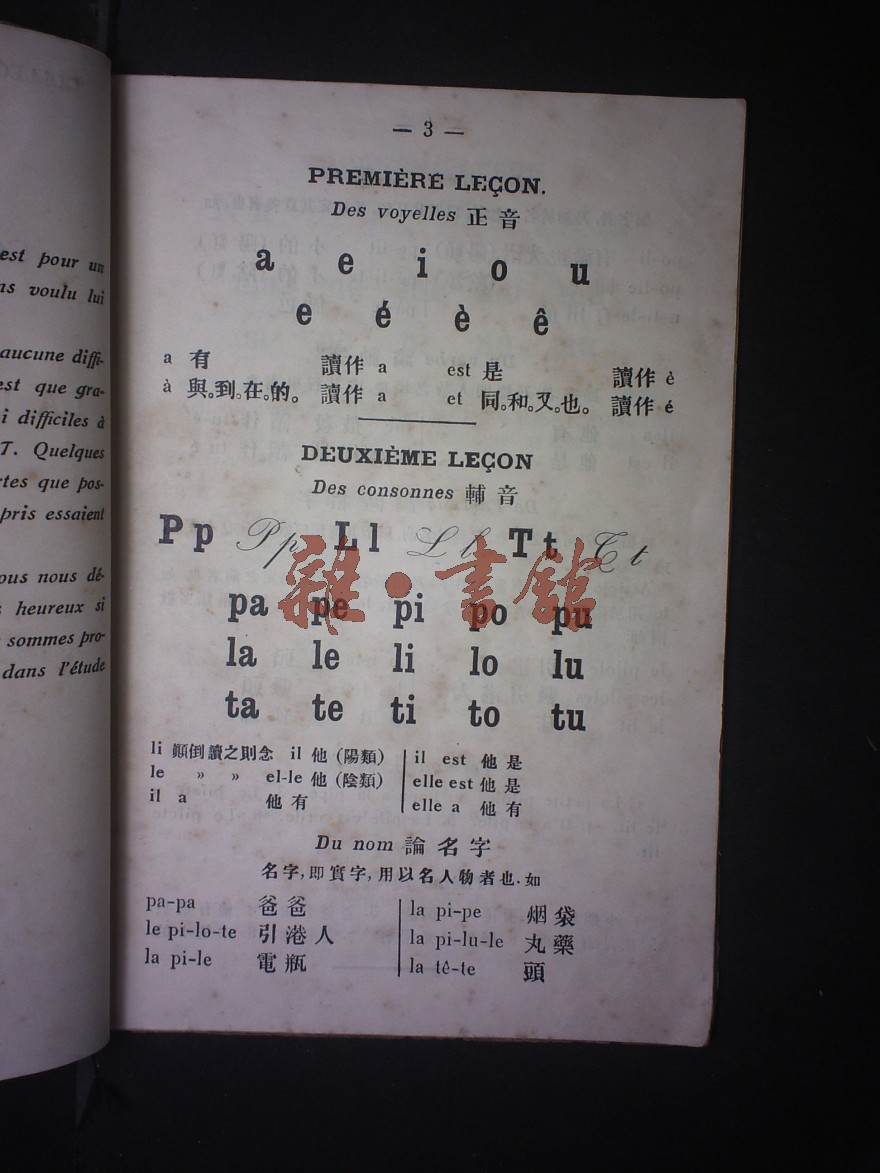 est pour un
as voulu lui
aucune diffi-
est que gra-
i difficiles à
T. Quelques
tes que pos-
pris essaient
ous nous dé-
heureux si
sommes pro-
dans l'étude
— 3 —
PREMIÈRE LEÇON.
Des voyelles 正音
a e i o u
e é è ê
a 有 讀作 a est 是 讀作 è
à 與。到。在。的。 讀作 a et 同。和。又。也。 讀作 é
DEUXIÈME LEÇON
Des consonnes 輔音
P p P p L l L l T t T t
雜·書館
pa pe pi po pu
la le li lo lu
ta te ti to tu
li 顚倒讀之則念 il 他 (陽類)
le » » el-le 他 (陰類)
il a 他有
il est 他是
elle est 他是
elle a 他有
Du nom 論名字
名字,即實字,用以名人物者也.如
pa-pa 爸爸
le pi-lo-te 引港人
la pi-le 電瓶
la pi-pe 烟袋
la pi-lu-le 丸藥
la tê-te 頭